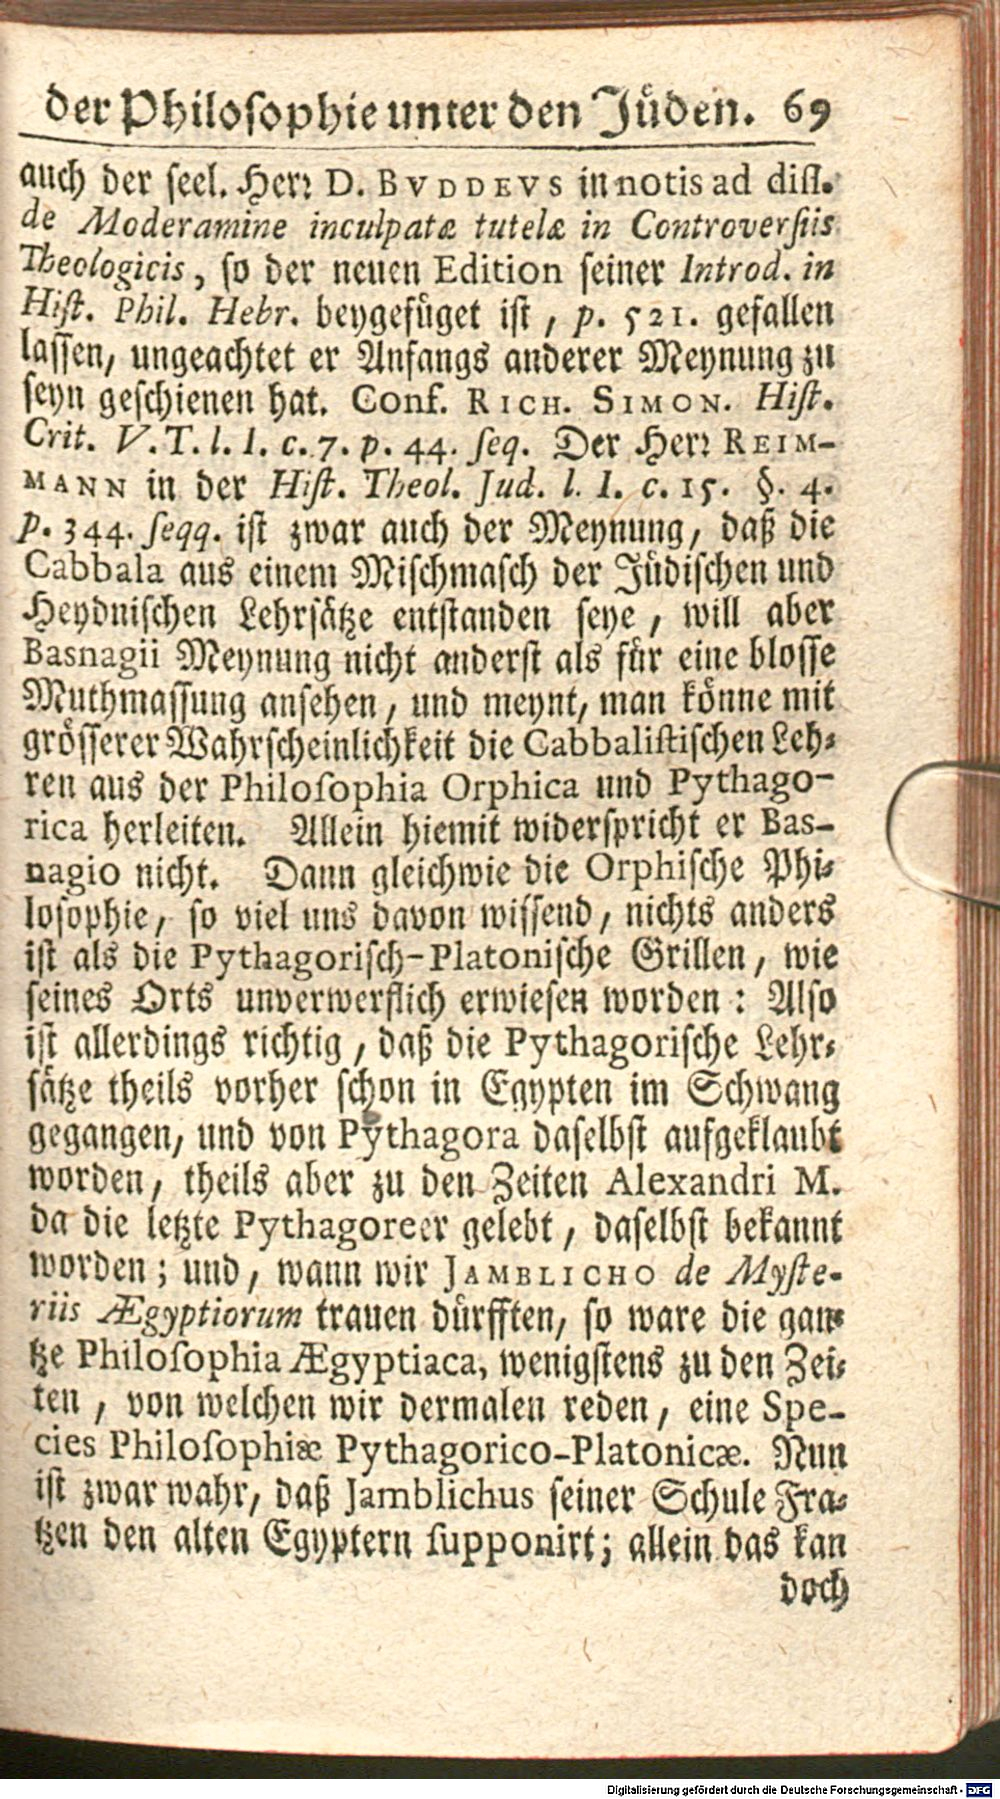 der Philosophie unter den Jüden. 69
auch der seel. Herr D. BVDDEVS in notis ad diss.
de Moderamine inculpatæ tutelæ in Controversiis
Theologicis, so der neuen Edition seiner Introd. in
Hist. Phil. Hebr. beygefüget ist, p. 521. gefallen
lassen, ungeachtet er Anfangs anderer Meynung zu
seyn geschienen hat. Conf. RICH. SIMON. Hist.
Crit. V. T. l. I. c. 7. p. 44. seq. Der Herr REIM-
MANN in der Hist. Theol. Jud. l. I. c. 15. §. 4.
p. 344. seqq. ist zwar auch der Meynung, daß die
Cabbala aus einem Mischmasch der Jüdischen und
Heydnischen Lehrsätze entstanden seye, will aber
Basnagii Meynung nicht anderst als für eine blosse
Muthmassung ansehen, und meynt, man könne mit
grösserer Wahrscheinlichkeit die Cabbalistischen Leh-
ren aus der Philosophia Orphica und Pythago-
rica herleiten. Allein hiemit widerspricht er Bas-
nagio nicht. Dann gleichwie die Orphische Phi-
losophie, so viel uns davon wissend, nichts anders
ist als die Pythagorisch-Platonische Grillen, wie
seines Orts unverwerflich erwiesen worden: Also
ist allerdings richtig, daß die Pythagorische Lehr-
sätze theils vorher schon in Egypten im Schwang
gegangen, und von Pythagora daselbst aufgeklaubt
worden, theils aber zu den Zeiten Alexandri M.
da die letzte Pythagoreer gelebt, daselbst bekannt
worden; und, wann wir JAMBLICHO de Myste-
riis Ægyptiorum trauen dürfften, so ware die gan-
tze Philosophia Ægyptiaca, wenigstens zu den Zei-
ten, von welchen wir dermalen reden, eine Spe-
cies Philosophiæ Pythagorico-Platonicæ. Nun
ist zwar wahr, daß Jamblichus seiner Schule Fra-
tzen den alten Egyptern supponirt; allein das kan
doch
Digitalisierung gefördert durch die Deutsche Forschungsgemeinschaft - DFG